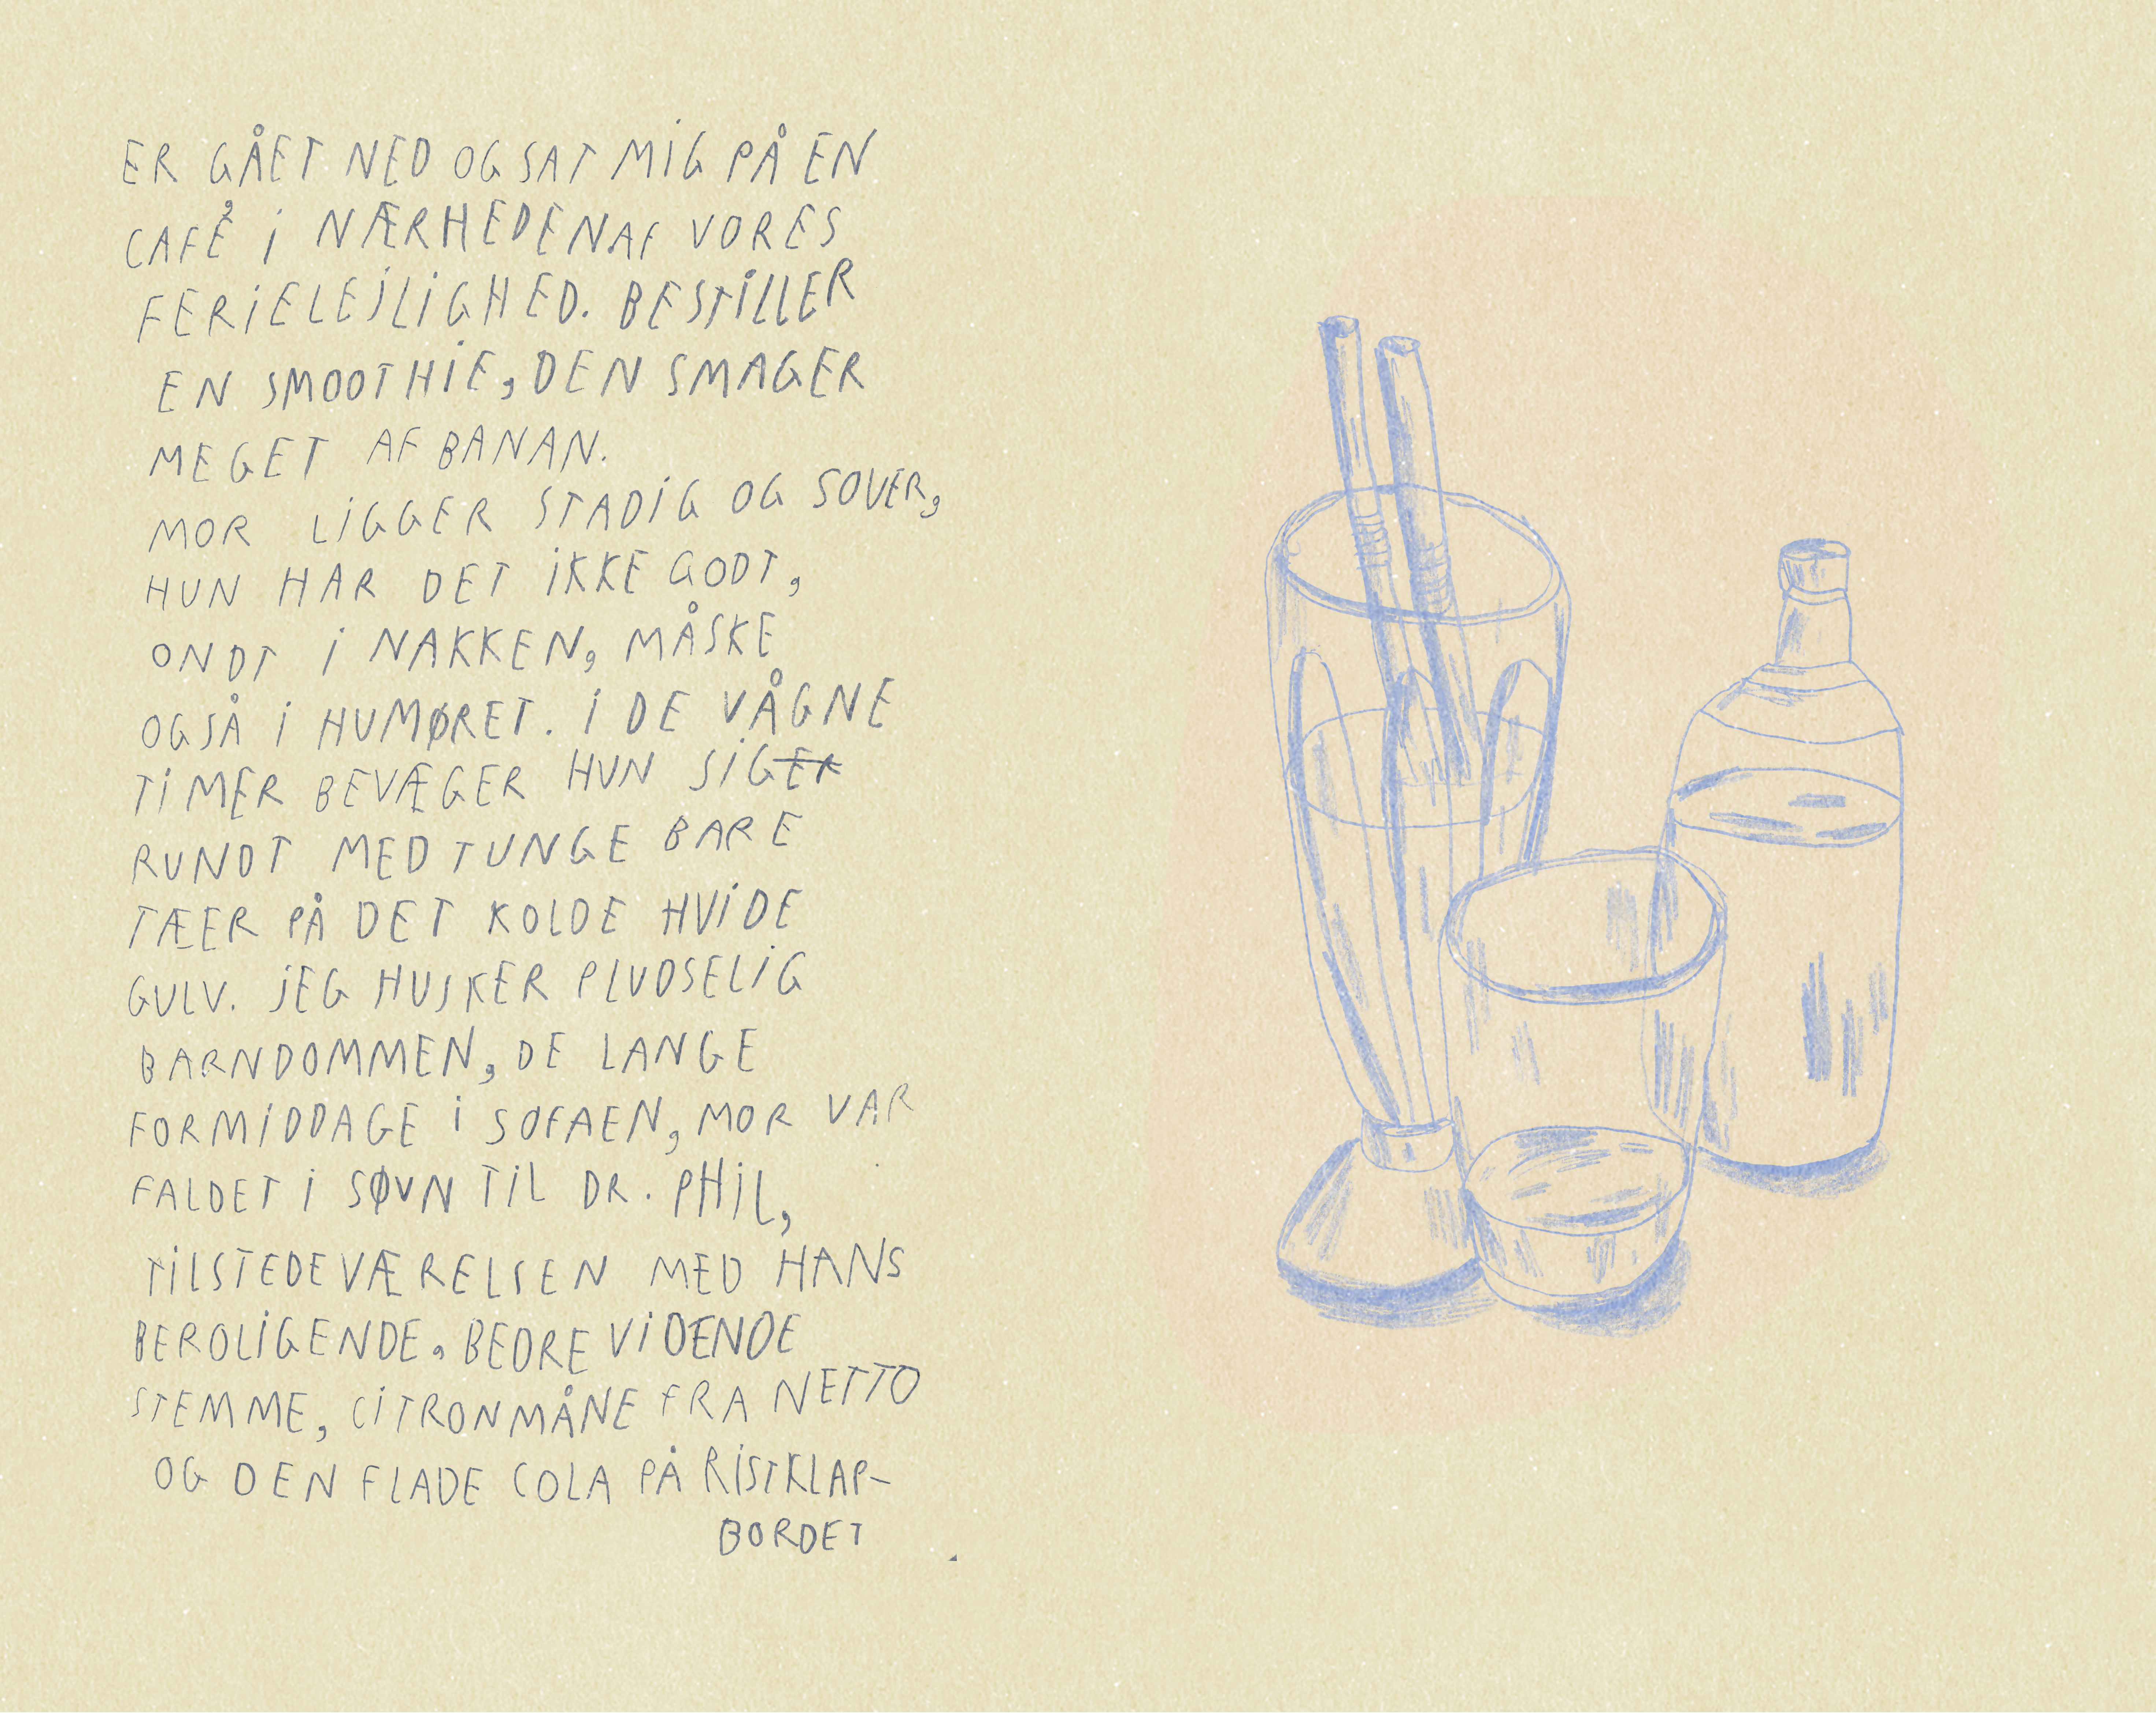 ER GÅET NED OG SAT MIG PÅ EN
CAFÉ I NÆRHEDEN AF VORES
FERIELEJLIGHED. BESTILLER
EN SMOOTHIE, DEN SMAGER
MEGET AF BANAN.
MOR LIGGER STADIG OG SOVER,
HUN HAR DET IKKE GODT,
ONDT I NAKKEN, MÅSKE
OGSÅ I HUMØRET. I DE VÅGNE
TIMER BEVÆGER HUN SIGER
RUNDT MED TUNGE BARE
TÆER PÅ DET KOLDE HVIDE
GULV. JEG HUSKER PLUDSELIG
BARNDOMMEN, DE LANGE
FORMIDDAGE I SOFAEN, MOR VAR
FALDET I SØVN TIL DR. PHIL,
TILSTEDEVÆRELSEN MED HANS
BEROLIGENDE, BEDREVIDENDE
STEMME, CITRONMÅNE FRA NETTO
OG DEN FLADE COLA PÅ RISTKLAP-
BORDET